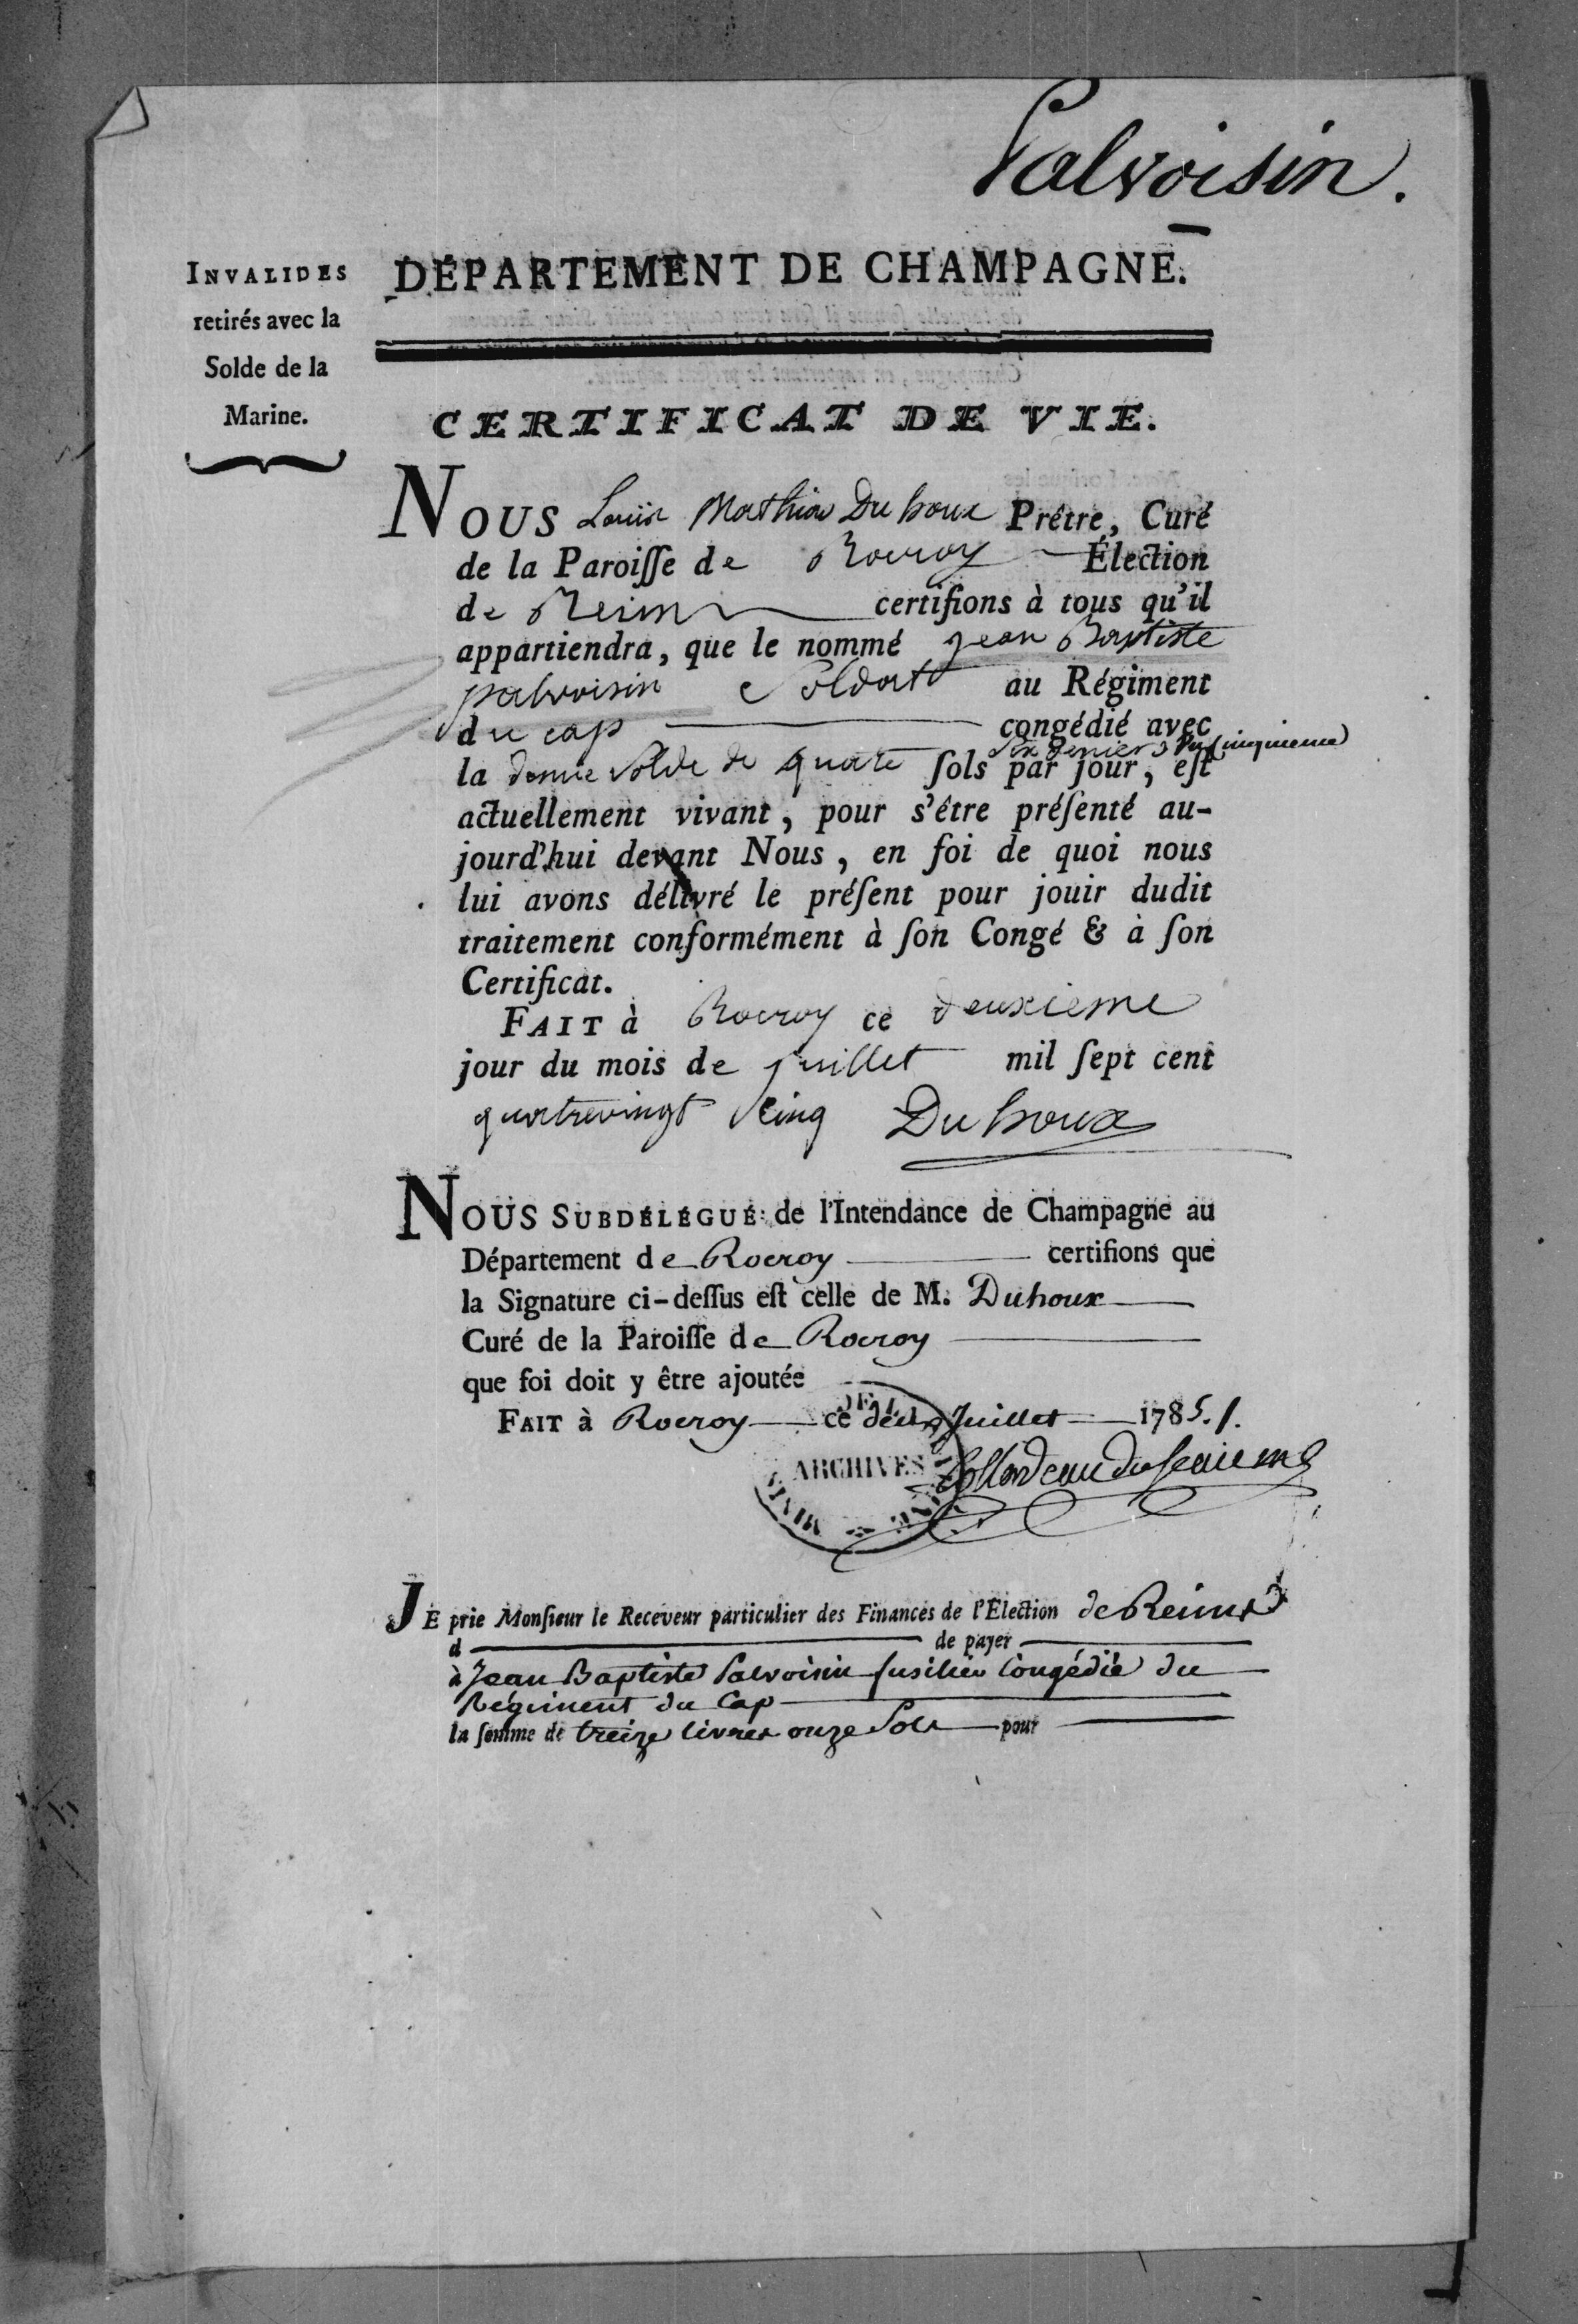 Palvoisin.
INVALIDES
retirés avec la
Solde de la
Marine.
DÉPARTEMENT DE CHAMPAGNE.
CERTIFICAT DE VIE.
NOUS Louis Mathieu Duhoux Prêtre, Curé
de la Paroiſſe de Rocroy Élection
de Reims certifions à tous qu'il
appartiendra, que le nommé jean Baptiste
palvoisin Soldat au Régiment
du cap congédié avec
six deniers
la demie solde de quatre ſols par jour, eſt
actuellement vivant, pour s'être préſenté au-
jourd'hui devant Nous, en foi de quoi nous
lui avons délivré le préſent pour jouir dudit
traitement conformément à ſon Congé & à ſon
Certificat.
FAIT à Rocroy ce deuxieme
jour du mois de juillet mil ſept cent
quatrevingt cinq Duhoux
NOUS SUBDÉLÉGUÉ de l'Intendance de Champagne au
Département de Rocroy certifions que
la Signature ci-deſſus eſt celle de M. Duhoux
Curé de la Paroiſſe de Rocroy
que foi doit y être ajoutée
FAIT à Rocroy ce deux Juillet 1785.
ARCHIVES
JE prie Monſieur le Receveur particulier des Finances de l'Élection de Reims
d de payer
à Jean Baptiste Palvoisin fusilier Congédié du
Régiment du Cap
la ſomme de treize livres onze Sols pour